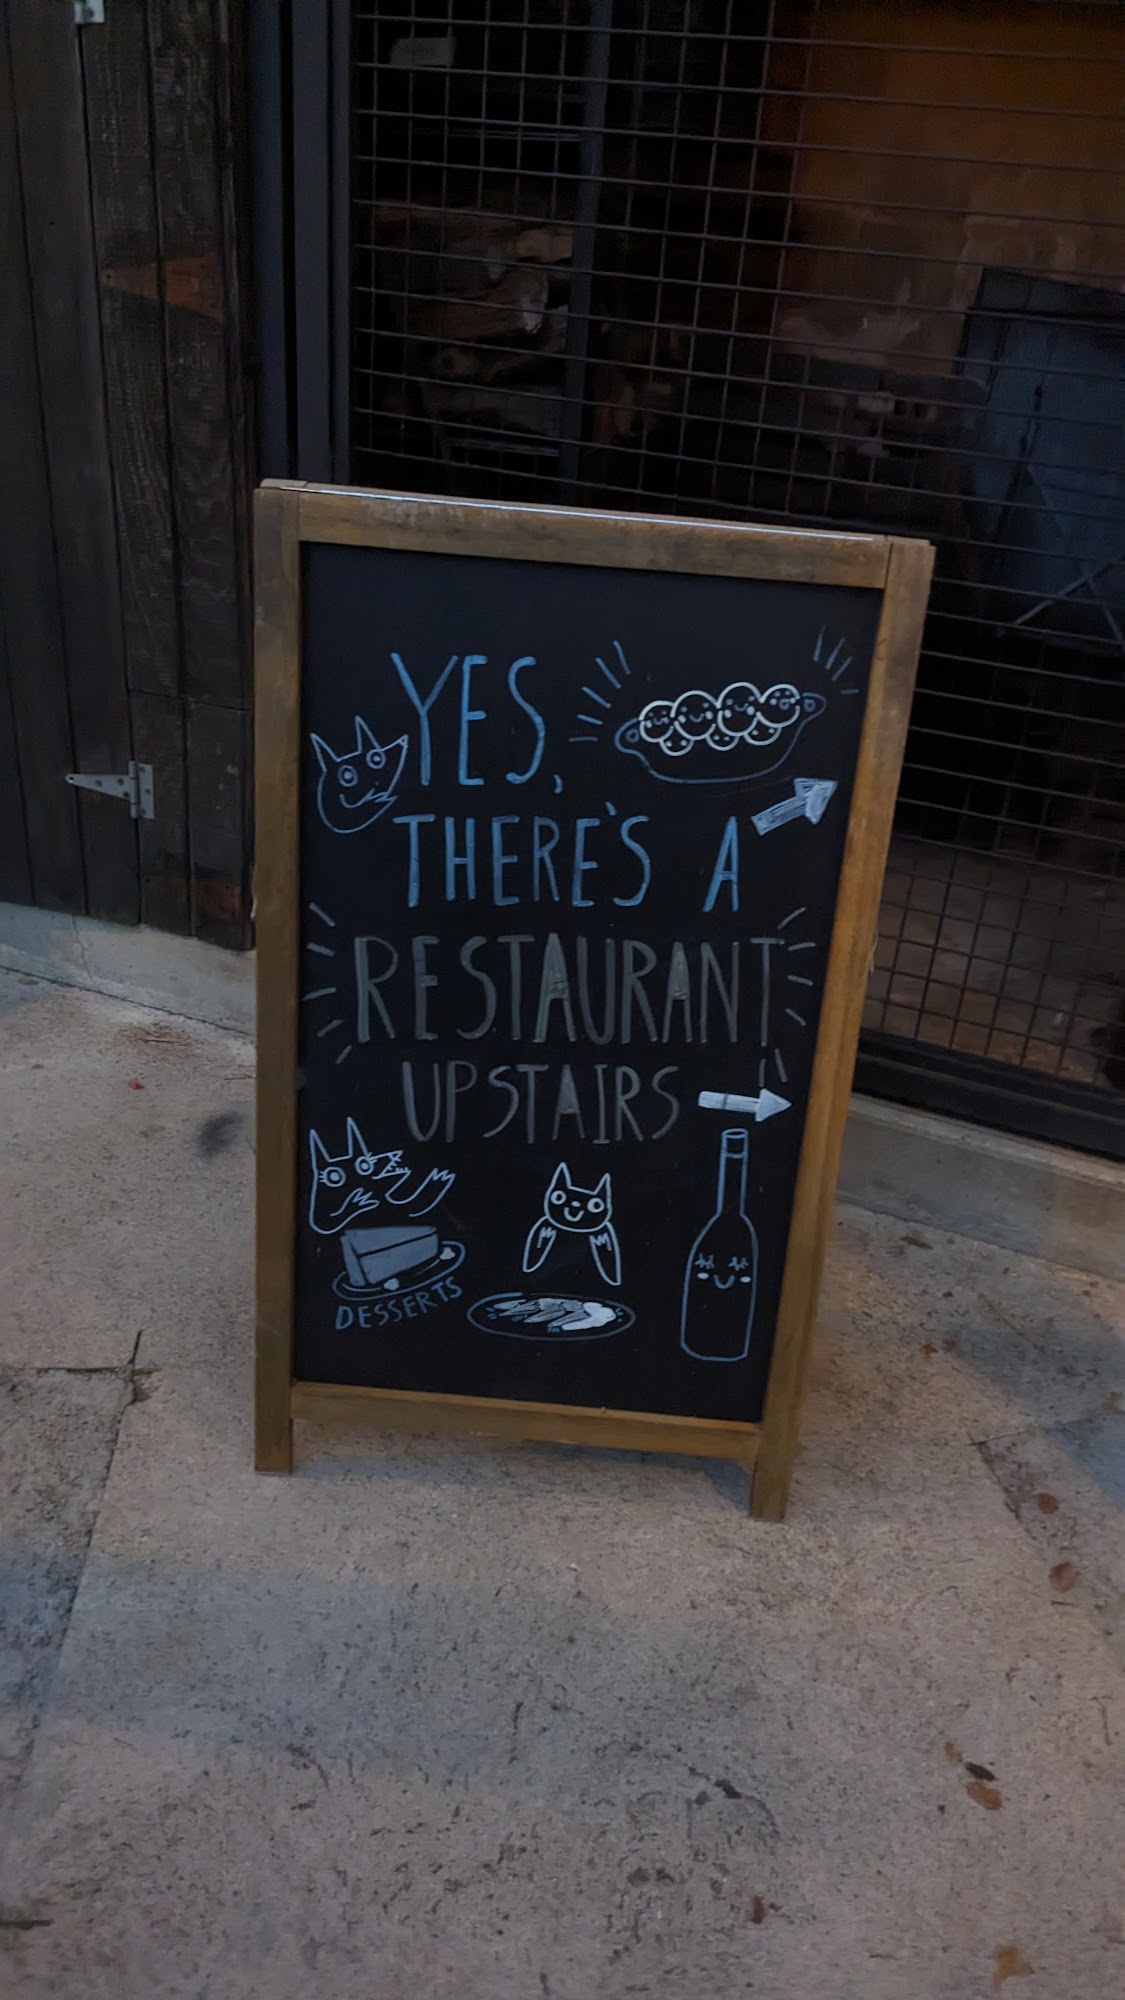 YES,
THERE'S A
RESTAURANT
UPSTAIRS
DESSERTS